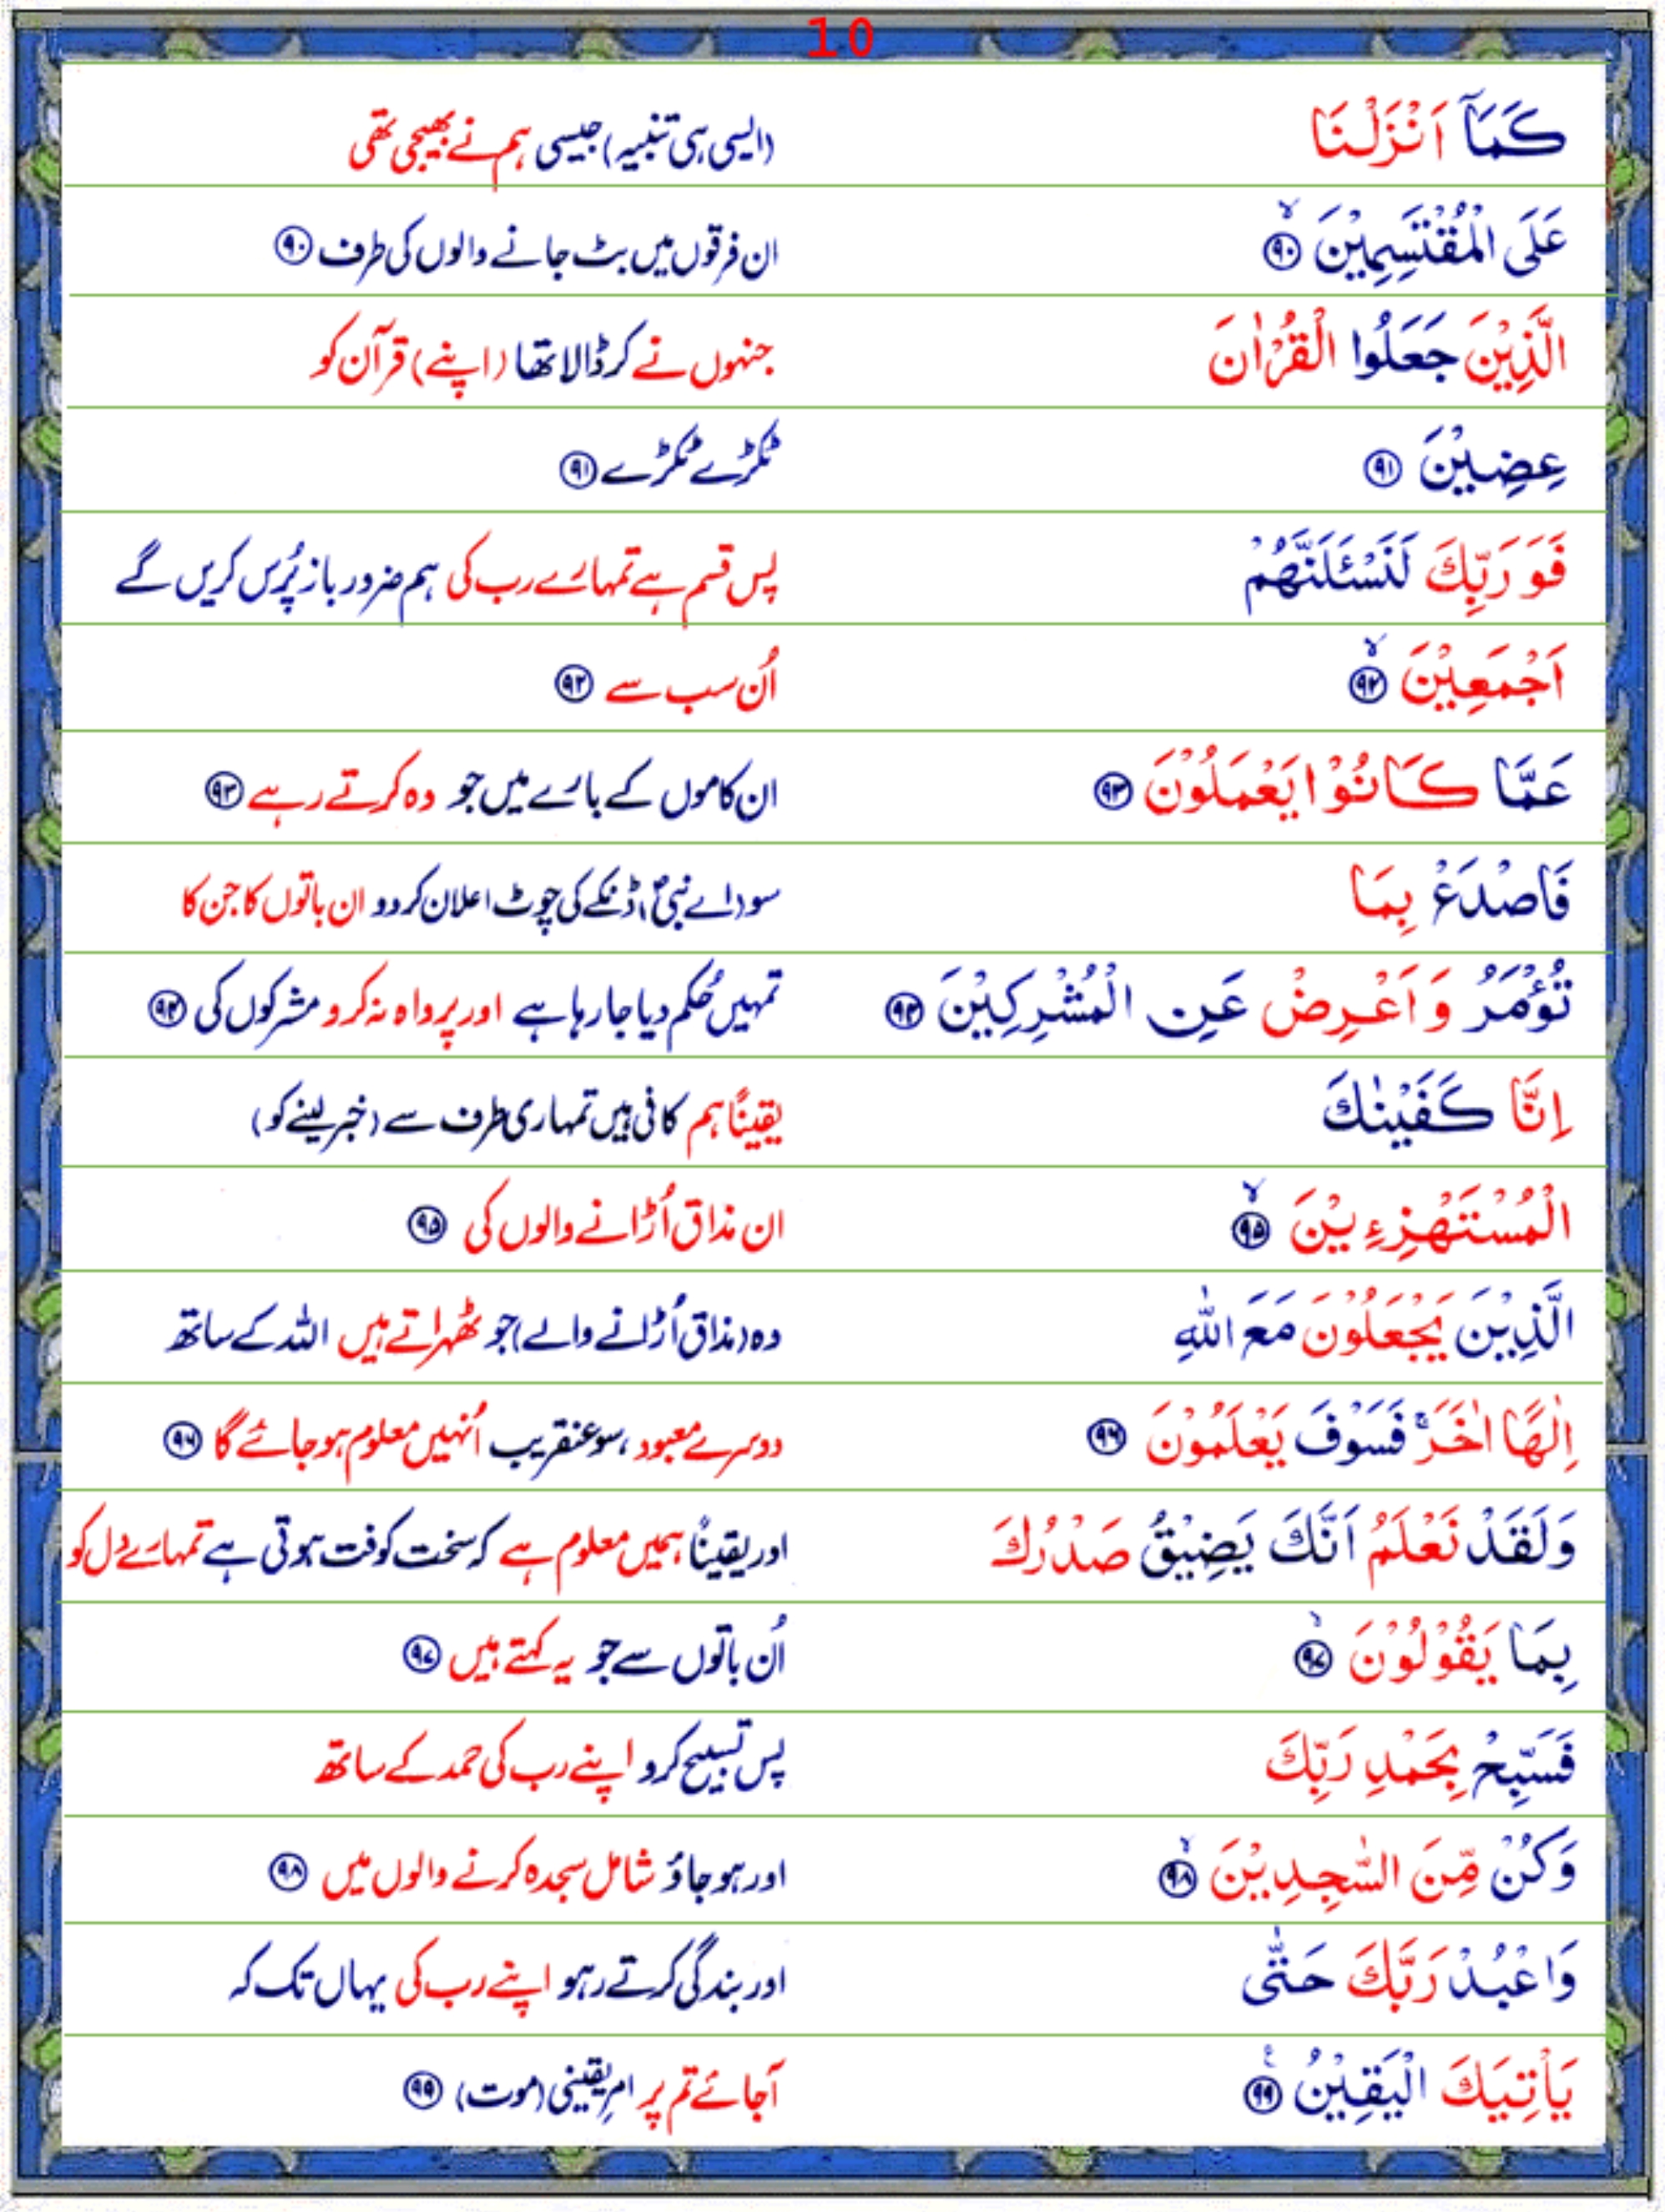 10
كَمَآ اَنْزَلْنَا (ایسی ہی تنبیہ) جیسی ہم نے بھیجی تھی
عَلَى الْمُقْتَسِمِيْنَ ۙ ۹۰ ان فرقوں میں بٹ جانے والوں کی طرف ۹۰
الَّذِيْنَ جَعَلُوا الْقُرْاٰنَ جنہوں نے کر ڈالا تھا (اپنے) قرآن کو
عِضِيْنَ ۹۱ ٹکڑے ٹکڑے ۹۱
فَوَرَبِّكَ لَنَسْـَٔلَنَّهُمْ پس قسم ہے تمہارے رب کی ہم ضرور باز پُرس کریں گے
اَجْمَعِيْنَ ۙ ۹۲ اُن سب سے ۹۲
عَمَّا كَانُوْا يَعْمَلُوْنَ ۹۳ ان کاموں کے بارے میں جو وہ کرتے رہے ۹۳
فَاصْدَعْ بِمَا سو (اے نبیؐ) ڈنکے کی چوٹ اعلان کردو ان باتوں کا جن کا
تُؤْمَرُ وَاَعْرِضْ عَنِ الْمُشْرِكِيْنَ ۹۴ تمہیں حُکم دیا جا رہا ہے اور پرواہ نہ کرو مشرکوں کی ۹۴
اِنَّا كَفَيْنٰكَ یقیناً ہم کافی ہیں تمہاری طرف سے (خبر لینے کو)
الْمُسْتَهْزِءِيْنَ ۙ ۹۵ ان مذاق اُڑانے والوں کی ۹۵
الَّذِيْنَ يَجْعَلُوْنَ مَعَ اللّٰهِ وہ (مذاق اُڑانے والے) جو ٹھہراتے ہیں اللہ کے ساتھ
اِلٰهًا اٰخَرَ ۚ فَسَوْفَ يَعْلَمُوْنَ ۹۶ دوسرے معبود، سو عنقریب اُنہیں معلوم ہوجائے گا ۹۶
وَلَقَدْ نَعْلَمُ اَنَّكَ يَضِيْقُ صَدْرُكَ اور یقیناً ہمیں معلوم ہے کہ سخت کوفت ہوتی ہے تمہارے دل کو
بِمَا يَقُوْلُوْنَ ۙ ۹۷ اُن باتوں سے جو یہ کہتے ہیں ۹۷
فَسَبِّحْ بِحَمْدِ رَبِّكَ پس تسبیح کرو اپنے رب کی حمد کے ساتھ
وَكُنْ مِّنَ السّٰجِدِيْنَ ۙ ۹۸ اور ہوجاؤ شامل سجدہ کرنے والوں میں ۹۸
وَاعْبُدْ رَبَّكَ حَتّٰى اور بندگی کرتے رہو اپنے رب کی یہاں تک کہ
يَاْتِيَكَ الْيَقِيْنُ ۹۹ آجائے تم پر امرِ یقینی (موت) ۹۹